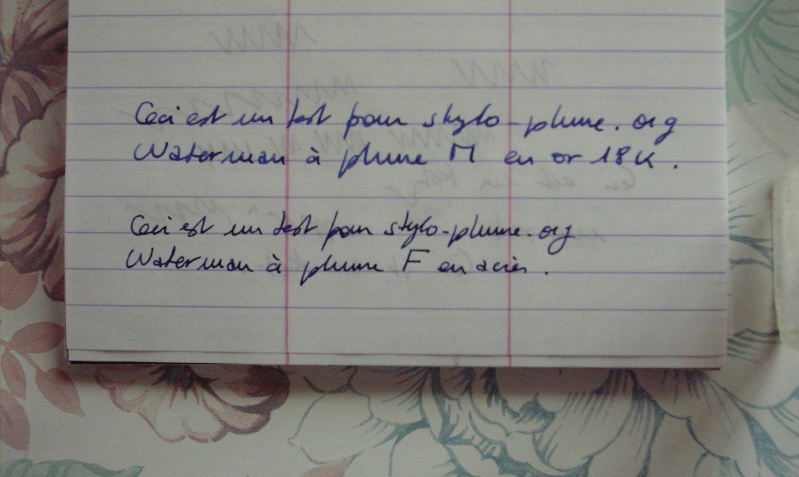 Ceci est un test pour stylo-plume.org
Waterman à plume M en or 18K.
Ceci est un test pour stylo-plume.org
Waterman à plume F en acier.